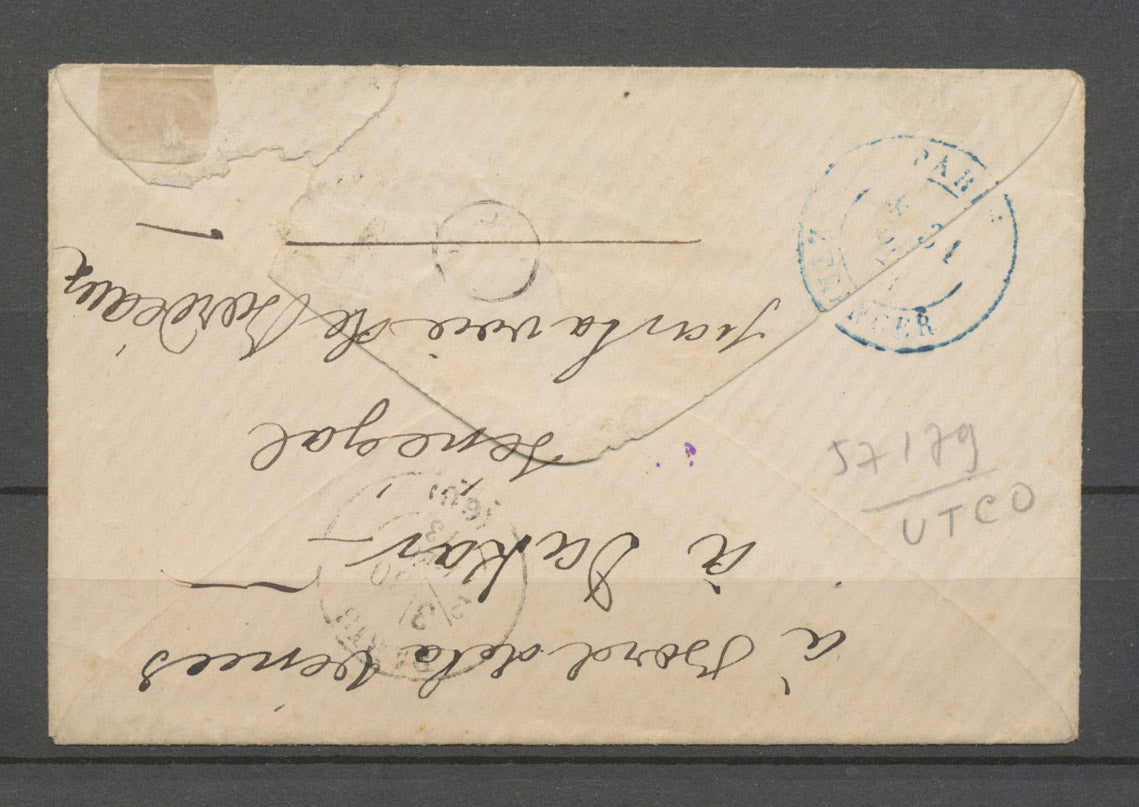 à Bord de la Vénus
à Dakar
Sénégal
par la voie de Bordeaux
PARIS
ETRANGER
PARIS
57179
UTCO